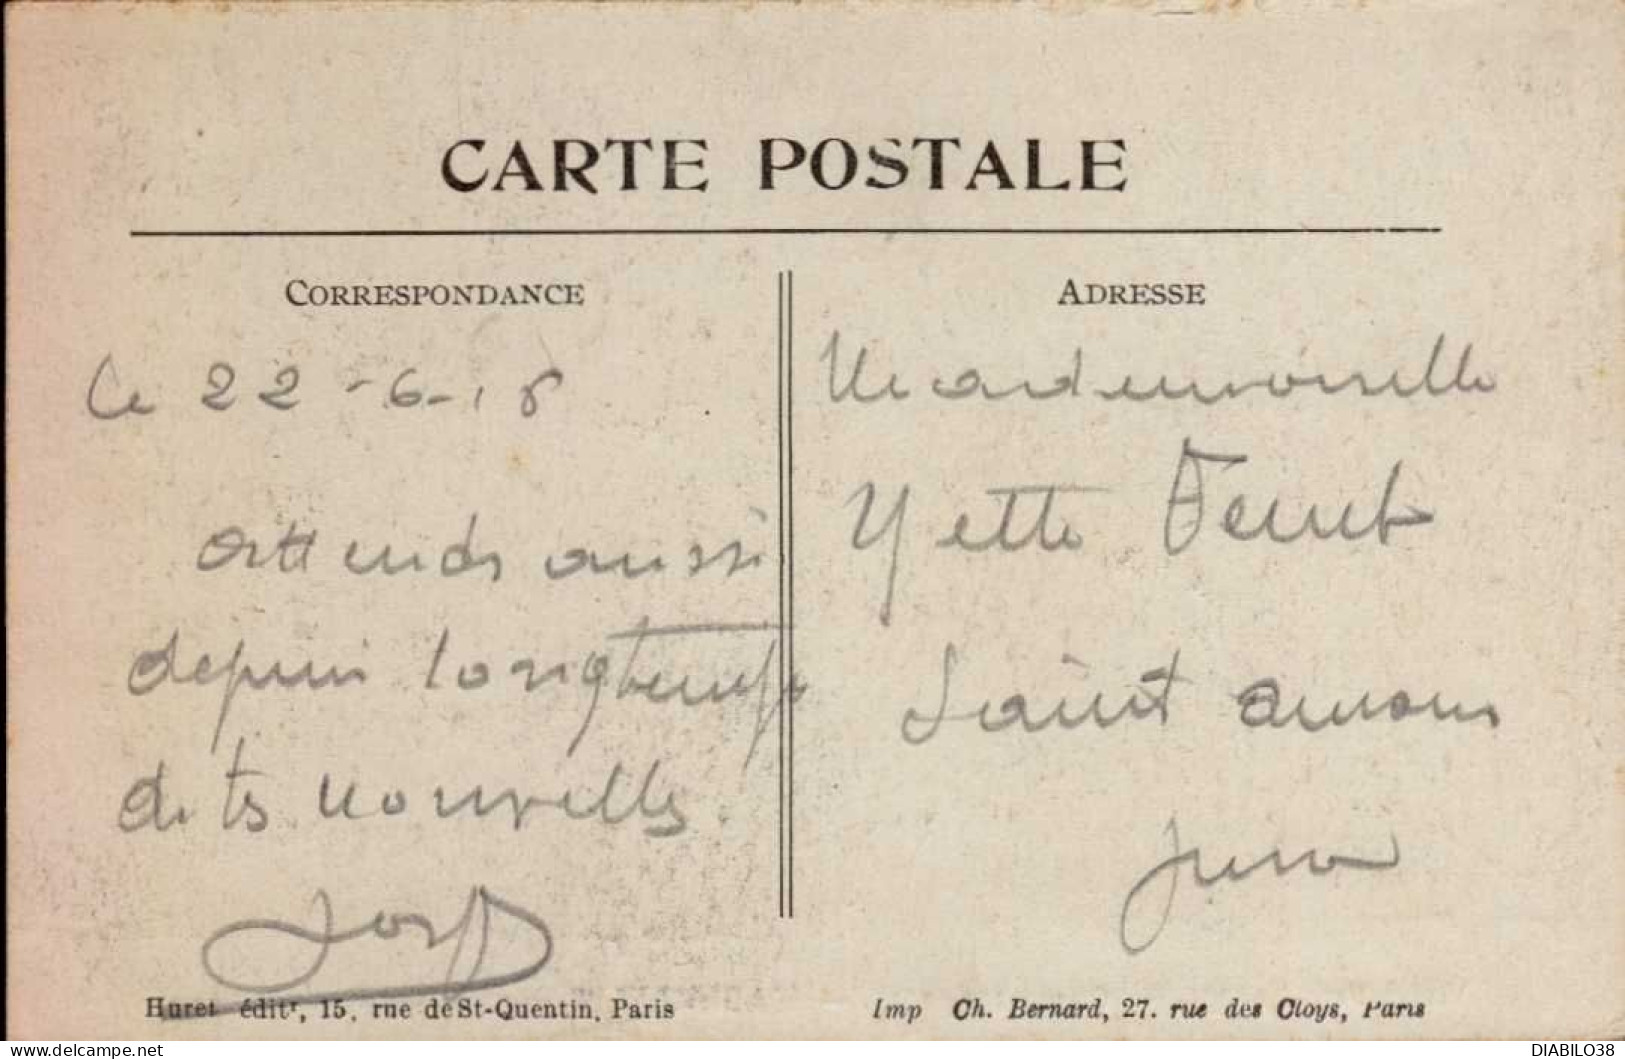 CARTE POSTALE
CORRESPONDANCE
Le 22-6-18
attends aussi
depuis longtemps
de tes nouvelles.
ADRESSE
Mademoiselle
Yette
Saint amour
Jura
Huret éditr, 15, rue de St-Quentin, Paris
Imp Ch. Bernard, 27. rue des Cloys, Paris
DIABILO38